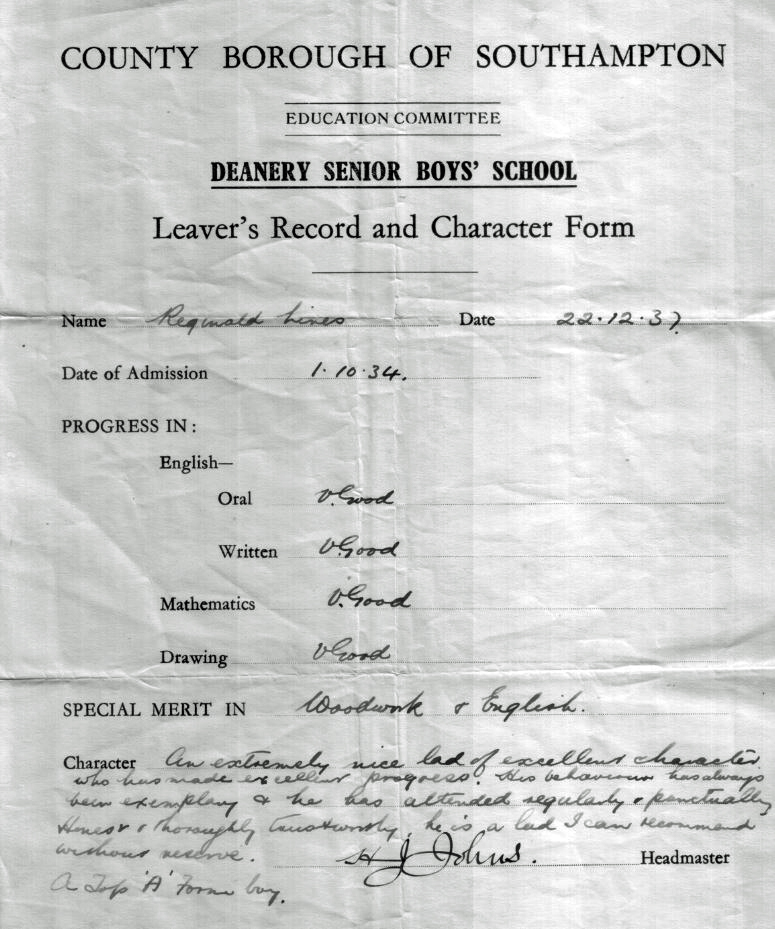 COUNTY BOROUGH OF SOUTHAMPTON
EDUCATION COMMITTEE
DEANERY SENIOR BOYS' SCHOOL
Leaver's Record and Character Form
Name Reginald Lines Date 22.12.37
Date of Admission 1.10.34.
PROGRESS IN :
English—
Oral V.Good
Written V.Good
Mathematics V.Good
Drawing V.Good
SPECIAL MERIT IN Woodwork & English.
Character An extremely nice lad of excellent character
who has made excellent progress. His behaviour has always
been exemplary & he has attended regularly & punctually
Honest & thoroughly trustworthy, he is a lad I can recommend
without reserve. H J Johns. Headmaster
A Top 'A' Form boy.